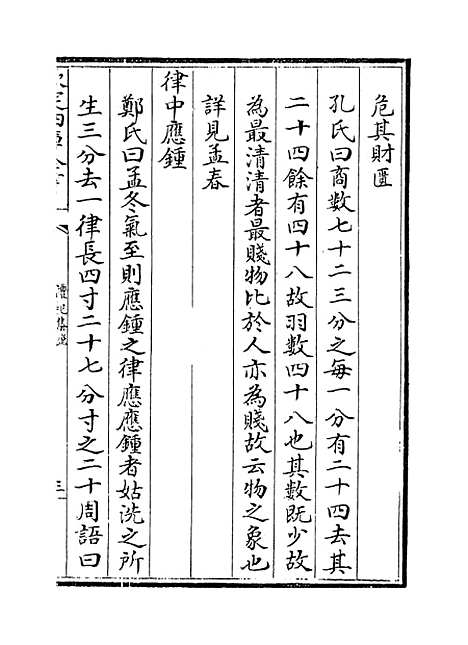 危其財匱
孔氏曰商數七十二三分之每一分有二十四去其
二十四餘有四十八故羽數四十八也其數既少故
為最清清者最賤物比於人亦為賤故云物之象也
詳見孟春
律中應鍾
鄭氏曰孟冬氣至則應鍾之律應應鍾者姑洗之所
生三分去一律長四寸二十七分寸之二十周語曰
禮記集說